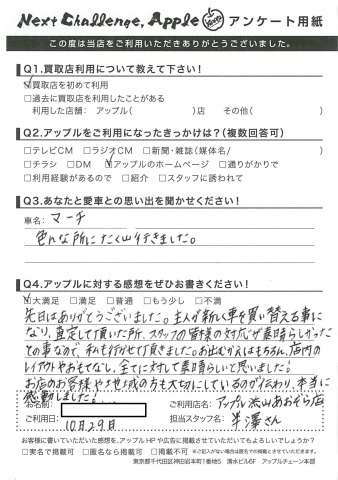 Next Challenge, Apple アンケート用紙
この度は当店をご利用いただきありがとうございました。
Q1.買取店利用について教えて下さい！
☑買取店を初めて利用
□過去に買取店を利用したことがある
利用した店舗： アップル( )店 その他( )
Q2.アップルをご利用になったきっかけは？(複数回答可)
□テレビCM □ラジオCM □新聞・雑誌(媒体名/ )
□チラシ □DM ☑アップルのホームページ □通りがかりで
□利用経験があるので □紹介 □スタッフに誘われて
Q3.あなたと愛車との思い出を聞かせください！
車名： マーチ
色んな所にたく山行きました。
Q4.アップルに対する感想をぜひお書きください！
☑大満足 □満足 □普通 □もう少し □不満
先日はありがとうございました。主人が新しく車を買い替える事に
なり、査定して頂いた所、スタッフの皆様の対応が素晴らしかった
との事なので、私も行かせて頂きました。お出むかえはもちろん、店内の
レイアウトやおもてなし、全てに対して素晴らしいと思いました！
お店のお客様や地域の方も大切にしているのが伝わり、本当に
感動しました！
お名前： ご利用店名： アップル流山おおぞら店
ご利用日： 10月29日 担当スタッフ名： 半澤さん
お客様に書いていただいた感想を、アップルHPや広告に掲載させていただいてもよろしいでしょうか？
□実名で掲載可 □匿名なら掲載可 □不可 ※ご記入がない場合は匿名とさせていただきます。
東京都千代田区神田岩本町1番地5 清水ビル6F アップルチェーン本部